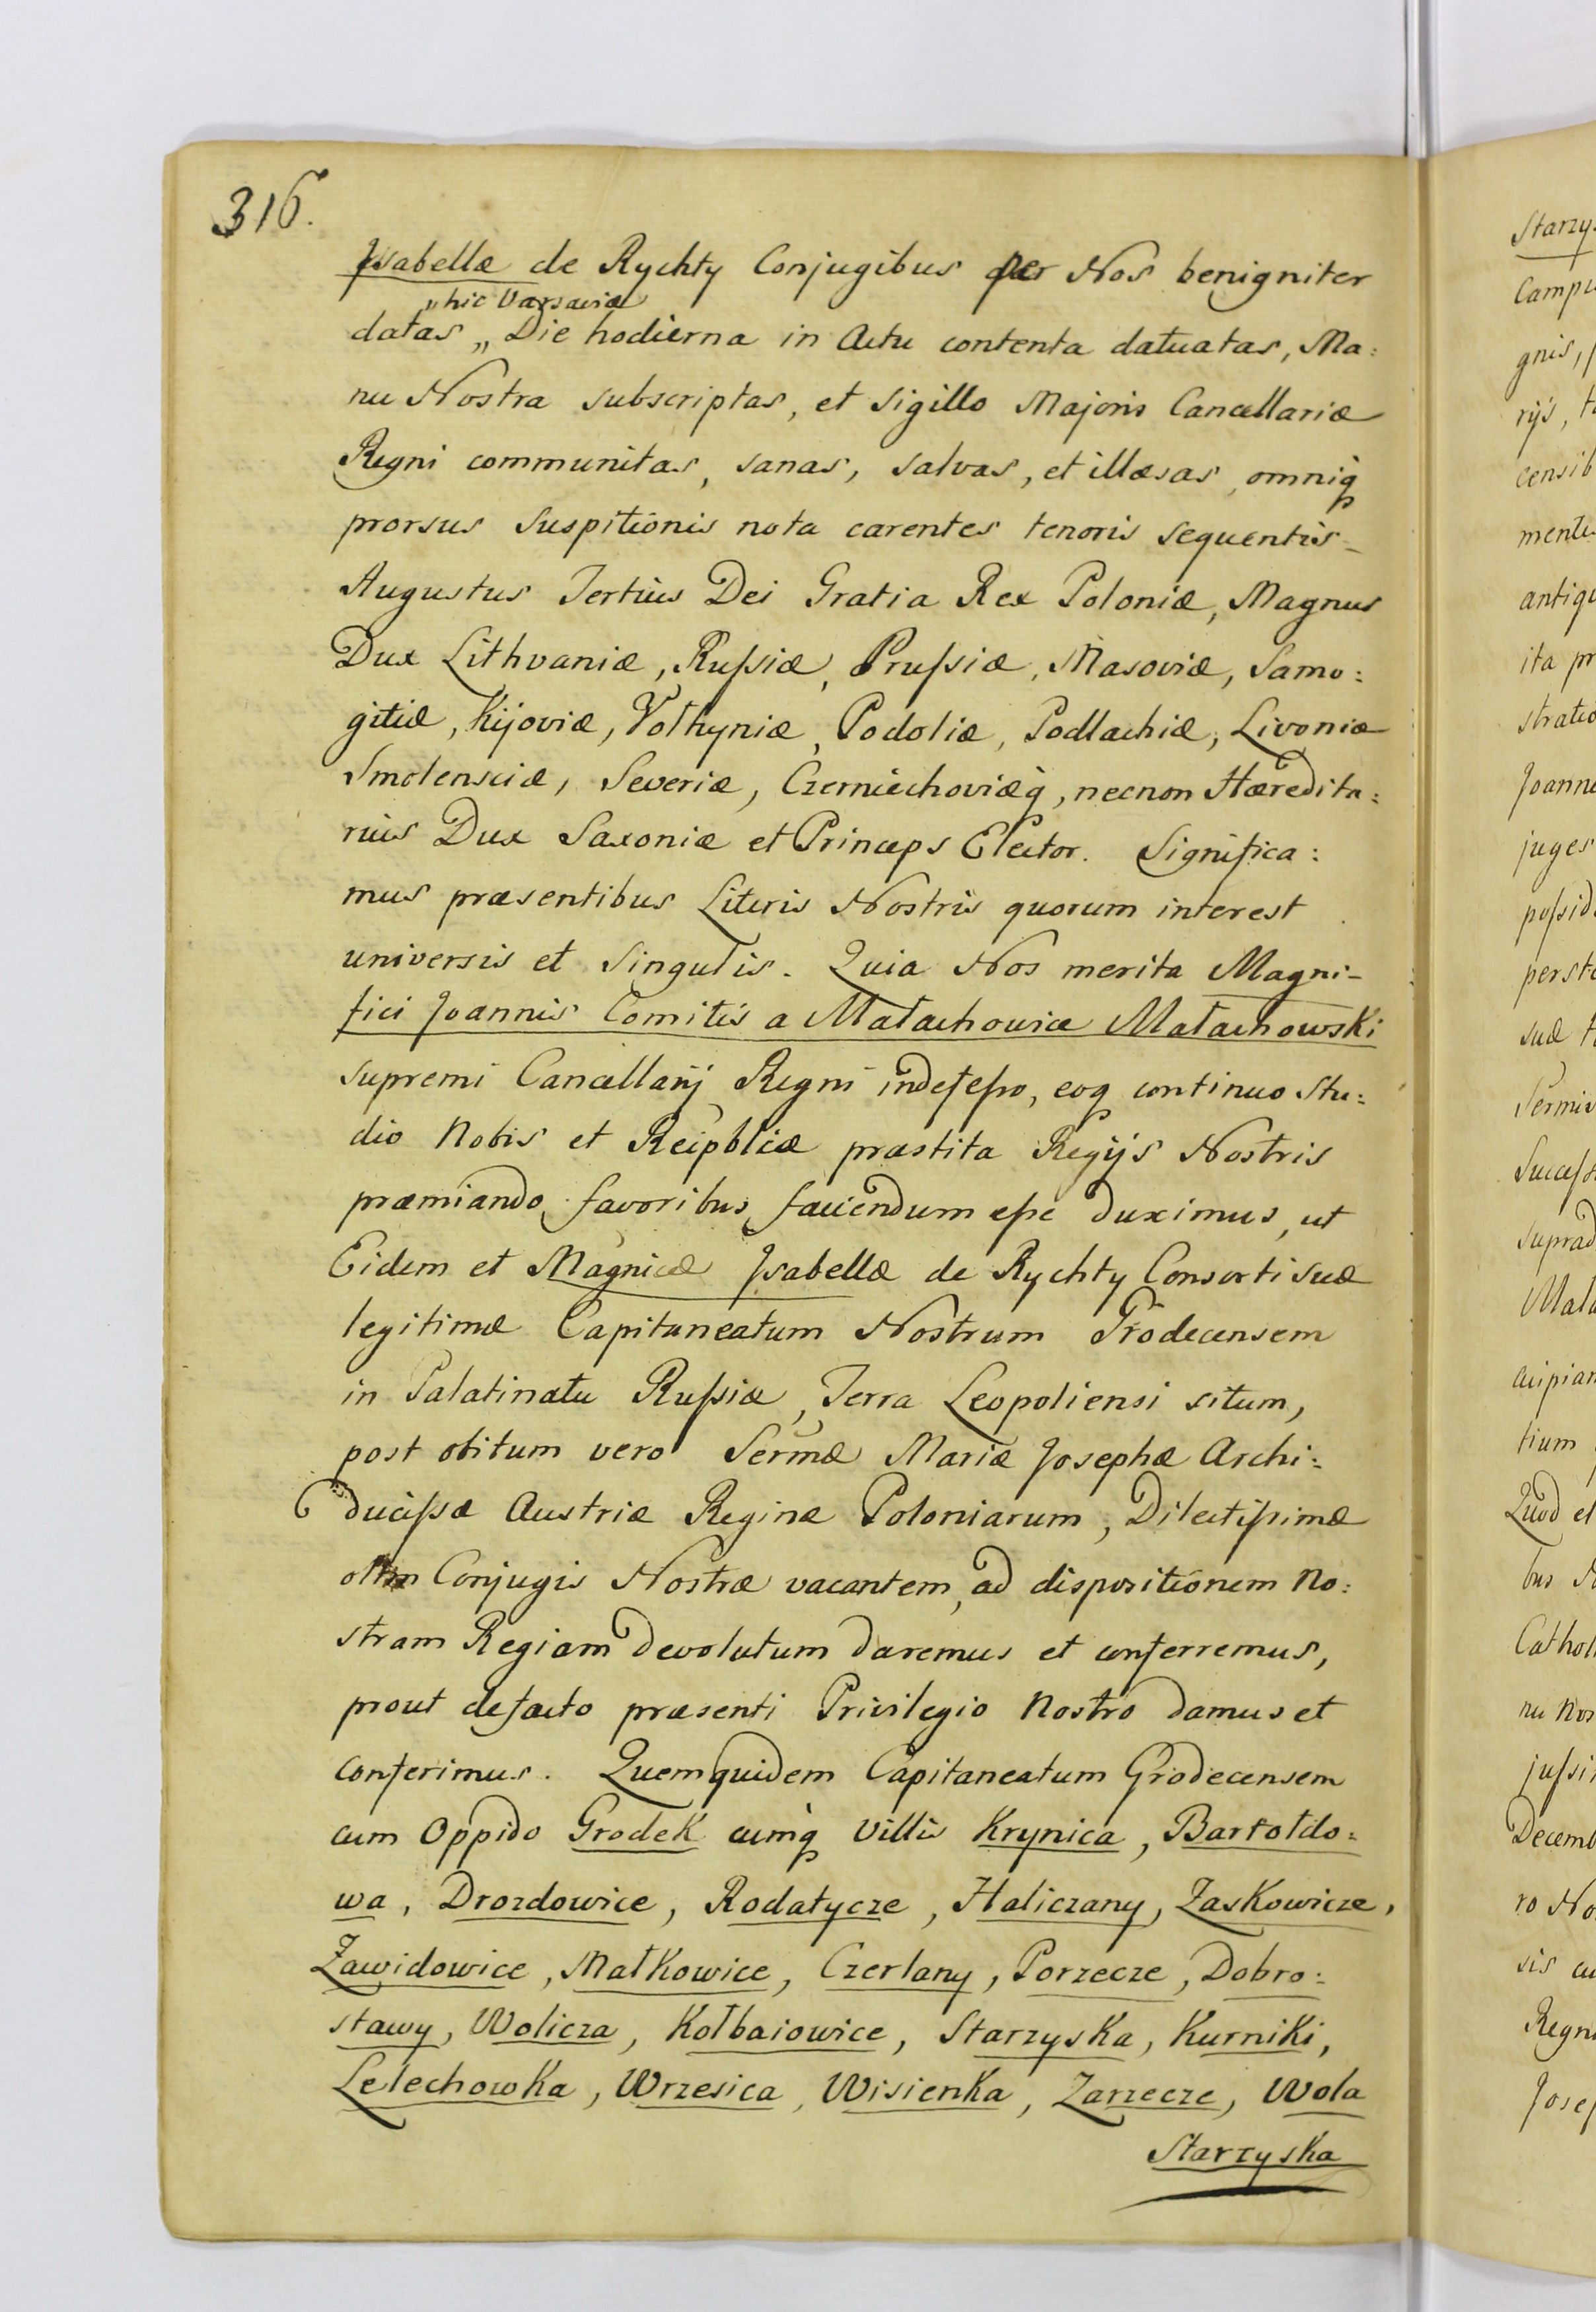 316.
Isabellæ de Rychty Conjugibus per Nos benigniter
„hic Varsaviæ
datas „ Die hodierna in Actu contenta datuatas, Ma:
nu Nostra subscriptas, et Sigillo Majoris Cancellariæ
Regni communitas, sanas, salvas, et illæsas, omniq
prorsus Suspitionis nota carentes tenoris sequentis_
Augustus Tertius Dei Gratia Rex Poloniæ, Magnus
Dux Lithvaniæ, Rußiæ, Prußiæ, Masoviæ, Samo:
gitiæ, Kijoviæ, Volhyniæ, Podoliæ, Podlachiæ, Livoniæ
Smolensciæ, Severiæ, Czerniechoviæq, necnon Hæredita:
rius Dux Saxoniæ et Princeps Elector. Significa:
mus præsentibus Literis Nostris quorum interest
universis et Singulis. Quia Nos merita Magni-
fici Joannis Comitis a Małachowice Małachowski
supremi Cancellarij Regni indefeßo, eoq continuo Stu:
dio Nobis et Reipblicæ præstita Regijs Nostris
præmiando favoribus, faciendum eße duximus, ut
Eidem et Magnicæ Isabellæ de Rychty Consorti suæ
legitimæ Capitaneatum Nostrum Grodecensem
in Palatinatu Rußiæ, Terra Leopoliensi situm,
post obitum vero Sermæ Mariæ Josephæ Archi:
ducißæ Austriæ Reginæ Poloniarum, Dilectißimæ
olim Conjugis Nostræ vacantem, ad dispositionem No:
stram Regiam devolutum daremus et conferremus,
prout defacto præsenti Privilegio Nostro damus et
conferimus. Quemquidem Capitaneatum Grodecensem
cum Oppido Grodek cumq Villis Krynica, Bartołdo:
wa, Drozdowice, Rodatycze, Haliczany, Zaskowicze,
Zawidowice, Małkowice, Czerlany, Porzecze, Dobro:
stawy, Wolicza, Kołbaiowice, Starzyska, Kurniki,
Lelechowka, Wrzesica, Wisienka, Zarzecze, Wola
Starzyska